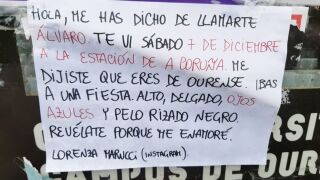 HOLA, ME HAS DICHO DE LLAMARTE
ÁLVARO. TE VI SÁBADO 7 DE DICIEMBRE
A LA ESTACIÓN DE A CORUÑA. ME
DIJISTE QUE ERES DE OURENSE. IBAS
A UNA FIESTA. ALTO, DELGADO, OJOS
AZULES Y PELO RIZADO NEGRO.
REVÉLATE PORQUE ME ENAMORÉ.
LORENZA MARUCCI (INSTAGRAM).
CAMPUS DE OU